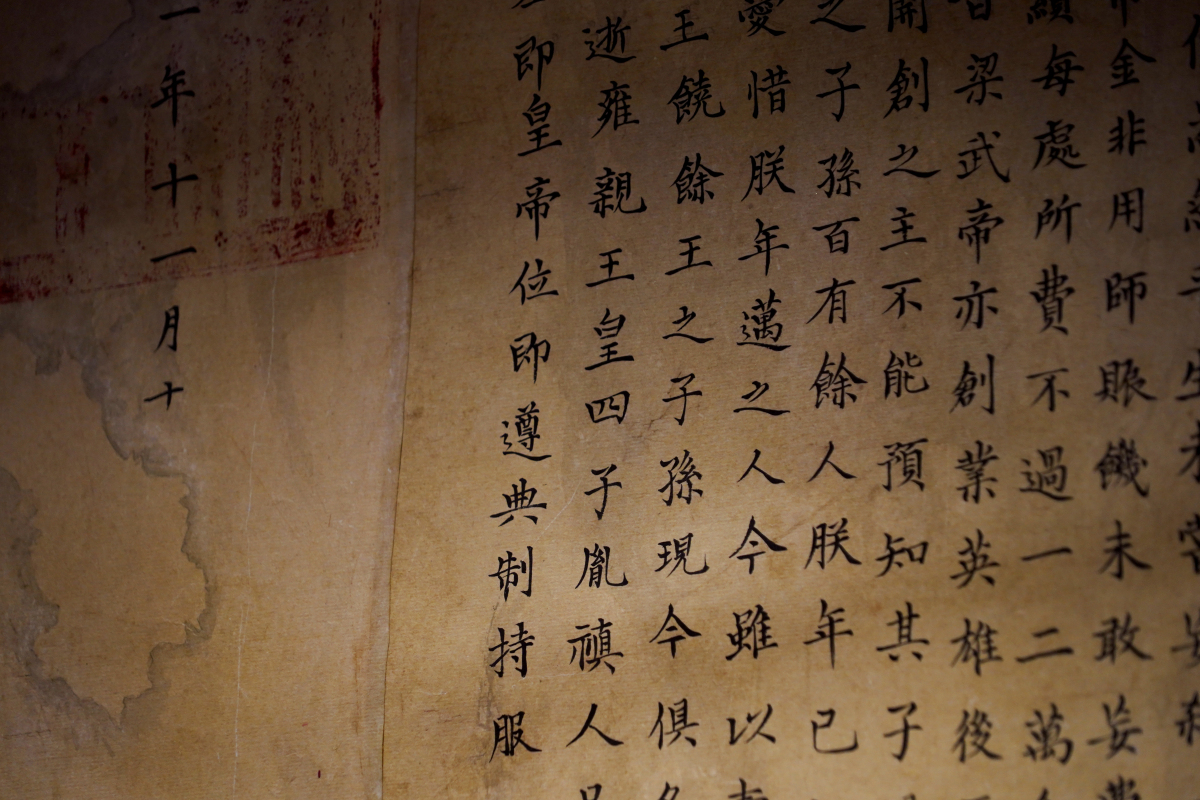 金非用師賑饑未敢妄
每處所費不過一二萬
昔梁武帝亦創業英雄後
開創之主不能預知其子
之子孫百有餘人朕年已
愛惜朕年邁之人今雖以
王饒餘王之子孫現今俱
逝雍親王皇四子胤禛人
即皇帝位即遵典制持服
年十一月十